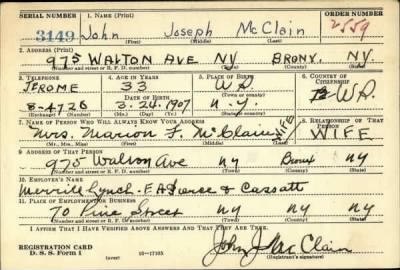 SERIAL NUMBER 1. NAME (Print) ORDER NUMBER
3149 John Joseph McClain 2559
(First) (Middle) (Last)
2. ADDRESS (Print)
975 WALTON AVE NY BRONX, NY.
(Number and street or R. F. D. number) (Town) (County) (State)
3. TELEPHONE 4. AGE IN YEARS 5. PLACE OF BIRTH 6. COUNTRY OF CITIZENSHIP
JEROME 33
DATE OF BIRTH (Town or county)
8-4726 3. 24. 1907 N.Y.
(Exchange) (Number) (Mo.) (Day) (Yr.) (State or country)
7. NAME OF PERSON WHO WILL ALWAYS KNOW YOUR ADDRESS 8. RELATIONSHIP OF THAT PERSON
Mrs. Marion F. McClain WIFE WIFE
(Mr., Mrs., Miss) (First) (Middle) (Last)
9. ADDRESS OF THAT PERSON
975 Walton Ave NY Bronx NY
(Number and street or R. F. D. number) (Town) (County) (State)
10. EMPLOYER'S NAME
Merrill Lynch. E A Pierce & Cassatt
11. PLACE OF EMPLOYMENT OR BUSINESS
70 Pine Street NY NY
(Number and street or R. F. D. number) (Town) (County) (State)
I AFFIRM THAT I HAVE VERIFIED ABOVE ANSWERS AND THAT THEY ARE TRUE.
REGISTRATION CARD John J McClain
D. S. S. Form 1 (over) 16-17105 (Registrant's signature)